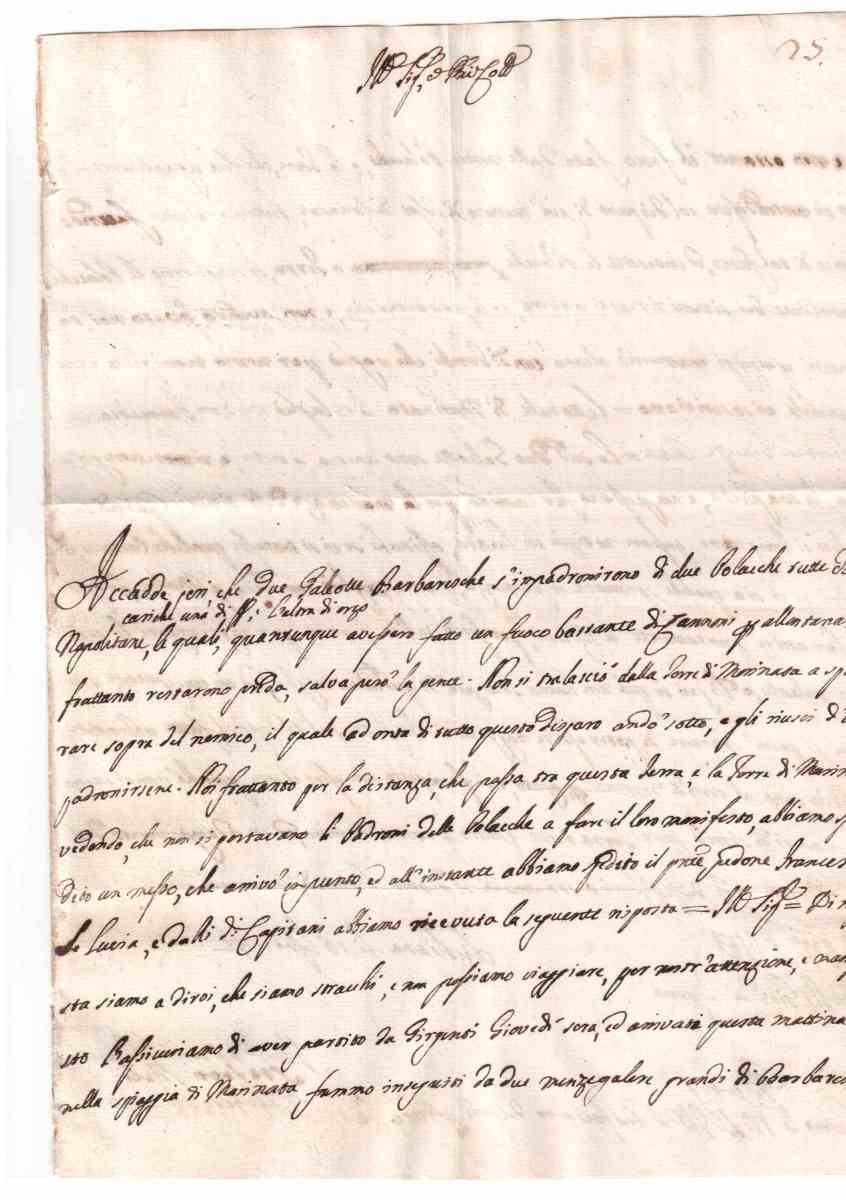 25.
Ill Sig.r e P̃ne Coll
Accadde jeri che due Galeotte Barbaresche s'impadronirono di due Polacche tutte
cariche una di, e l'altra di orzo
Napolitane, le quali, quantunque avessero fatto un fuoco bastante di Cannoni p allontana
frattanto restarono preda, salva però la gente. Non si tralasciò dalla Torre di Marinata a spa
rare sopra del nemico, il quale ad onta di tutto questo disparo andò sotto, e gli riuscì d'
padronirsene. Noi frattanto per la distanza, che passa tra questa Terra, e la Torre di Marin
vedendo, che non si portavano li Padroni delle Polacche a fare il loro manifesto, abbiamo sp
dito un messo, che arrivò in punto, ed all'instante abbiamo spedito il pnte pedone Frances
Lucia, e dalli di Capitani abbiamo ricevuta la seguente risposta = Ill Sig.r = Di
sta siamo a dirvi, che siamo stracchi, e non possiamo viaggiare, per vostr'attenzione, e
sto Rassicuriamo di aver partito da Girgenti Giovedì sera, ed arrivati questa mattina
nella spiaggia di Marinata fummo inseguiti da due menzegalere grandi di Barbare